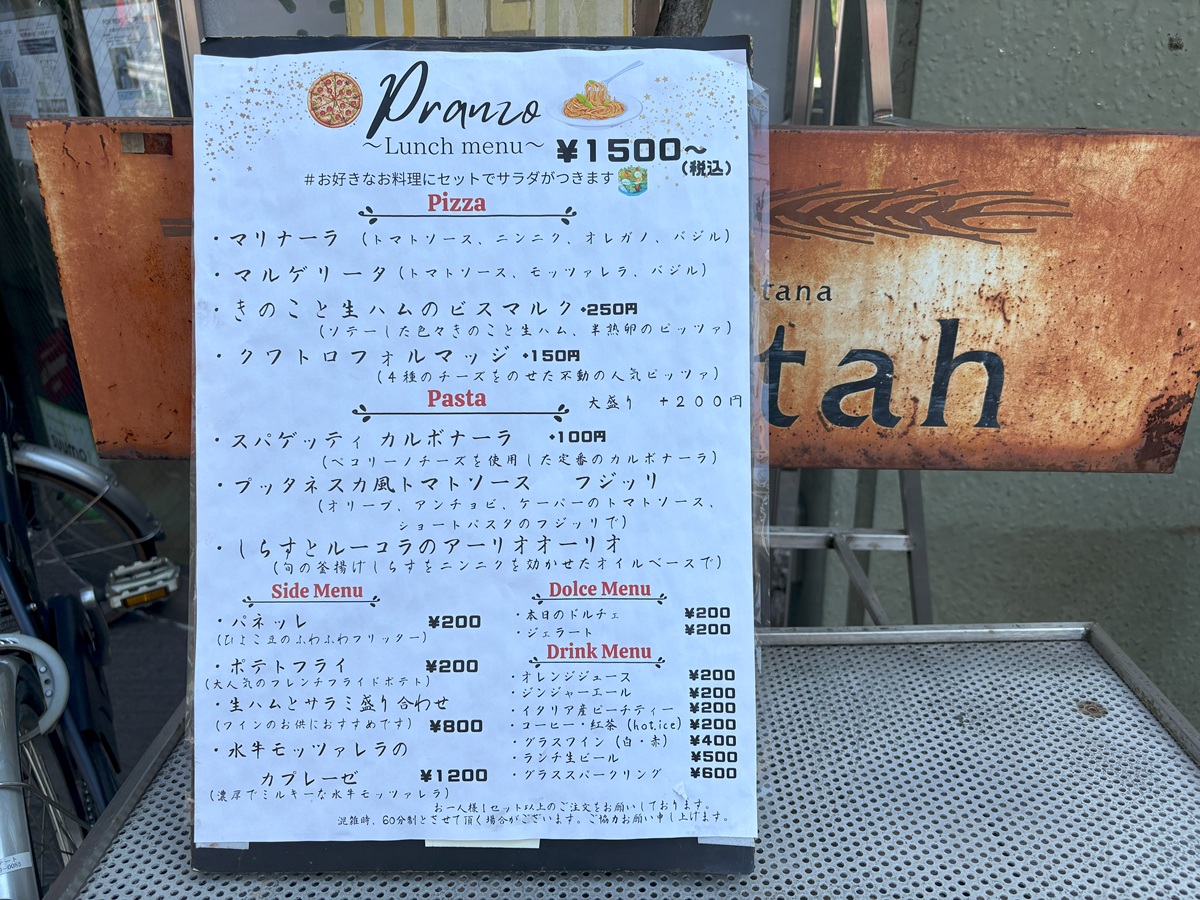 Pranzo
～Lunch menu～ ¥1500～
(税込)
#お好きなお料理にセットでサラダがつきます
Pizza
・マリナーラ （トマトソース、ニンニク、オレガノ、バジル）
・マルゲリータ（トマトソース、モッツァレラ、バジル）
・きのこと生ハムのビスマルク +250円
（ソテーした色々きのこと生ハム、半熟卵のピッツァ）
・クワトロフォルマッジ +150円
（4種のチーズをのせた不動の人気ピッツァ）
Pasta 大盛り +200円
・スパゲッティ カルボナーラ +100円
（ペコリーノチーズを使用した定番のカルボナーラ）
・プッタネスカ風トマトソース フジッリ
（オリーブ、アンチョビ、ケーパーのトマトソース、
ショートパスタのフジッリで）
・しらすとルーコラのアーリオオーリオ
（旬の釜揚げしらすをニンニクを効かせたオイルベースで）
Side Menu
・パネッレ ¥200
（ひよこ豆のふわふわフリッター）
・ポテトフライ ¥200
（大人気のフレンチフライドポテト）
・生ハムとサラミ盛り合わせ
（ワインのお供におすすめです） ¥800
・水牛モッツァレラの
カプレーゼ ¥1200
（濃厚でミルキーな水牛モッツァレラ）
Dolce Menu
・本日のドルチェ ¥200
・ジェラート ¥200
Drink Menu
・オレンジジュース ¥200
・ジンジャーエール ¥200
・イタリア産ピーチティー ¥200
・コーヒー・紅茶（hot,ice） ¥200
・グラスワイン（白・赤） ¥400
・ランチ生ビール ¥500
・グラススパークリング ¥600
お一人様1セット以上のご注文をお願いしております。
混雑時、60分制とさせて頂く場合がございます。ご協力お願い申し上げます。
tana
tah